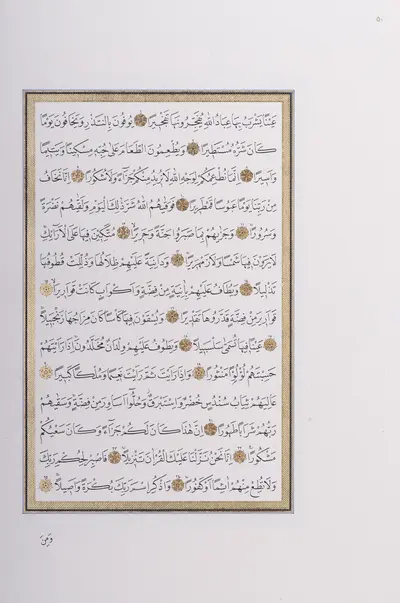 ٥٠
عَيْنًا يَشْرَبُ بِهَا عِبَادُ اللّٰهِ يُفَجِّرُونَهَا تَفْجِيرًا يُوفُونَ بِالنَّذْرِ وَيَخَافُونَ يَوْمًا
كَانَ شَرُّهُ مُسْتَطِيرًا وَيُطْعِمُونَ الطَّعَامَ عَلٰى حُبِّهِ مِسْكِينًا وَيَتِيمًا
وَاَسِيرًا اِنَّمَا نُطْعِمُكُمْ لِوَجْهِ اللّٰهِ لَا نُرِيدُ مِنْكُمْ جَزَاءً وَلَا شُكُورًا اِنَّا نَخَافُ
مِنْ رَبِّنَا يَوْمًا عَبُوسًا قَمْطَرِيرًا فَوَقٰيهُمُ اللّٰهُ شَرَّ ذٰلِكَ الْيَوْمِ وَلَقّٰيهُمْ نَضْرَةً
وَسُرُورًا وَجَزٰيهُمْ بِمَا صَبَرُوا جَنَّةً وَحَرِيرًا مُتَّكِئِينَ فِيهَا عَلَى الْاَرَائِكِ
لَا يَرَوْنَ فِيهَا شَمْسًا وَلَا زَمْهَرِيرًا وَدَانِيَةً عَلَيْهِمْ ظِلَالُهَا وَذُلِّلَتْ قُطُوفُهَا
تَذْلِيلًا وَيُطَافُ عَلَيْهِمْ بِاٰنِيَةٍ مِنْ فِضَّةٍ وَاَكْوَابٍ كَانَتْ قَوَارِيرَا
قَوَارِيرَ مِنْ فِضَّةٍ قَدَّرُوهَا تَقْدِيرًا وَيُسْقَوْنَ فِيهَا كَأْسًا كَانَ مِزَاجُهَا زَنْجَبِيلًا
عَيْنًا فِيهَا تُسَمّٰى سَلْسَبِيلًا وَيَطُوفُ عَلَيْهِمْ وِلْدَانٌ مُخَلَّدُونَ اِذَا رَاَيْتَهُمْ
حَسِبْتَهُمْ لُؤْلُؤًا مَنْثُورًا وَاِذَا رَاَيْتَ ثَمَّ رَاَيْتَ نَعِيمًا وَمُلْكًا كَبِيرًا
عَالِيَهُمْ ثِيَابُ سُنْدُسٍ خُضْرٌ وَاِسْتَبْرَقٌ وَحُلُّوا اَسَاوِرَ مِنْ فِضَّةٍ وَسَقٰيهُمْ
رَبُّهُمْ شَرَابًا طَهُورًا اِنَّ هٰذَا كَانَ لَكُمْ جَزَاءً وَكَانَ سَعْيُكُمْ
مَشْكُورًا اِنَّا نَحْنُ نَزَّلْنَا عَلَيْكَ الْقُرْاٰنَ تَنْزِيلًا فَاصْبِرْ لِحُكْمِ رَبِّكَ
وَلَا تُطِعْ مِنْهُمْ اٰثِمًا اَوْ كَفُورًا وَاذْكُرِ اسْمَ رَبِّكَ بُكْرَةً وَاَصِيلًا
وَمِنَ